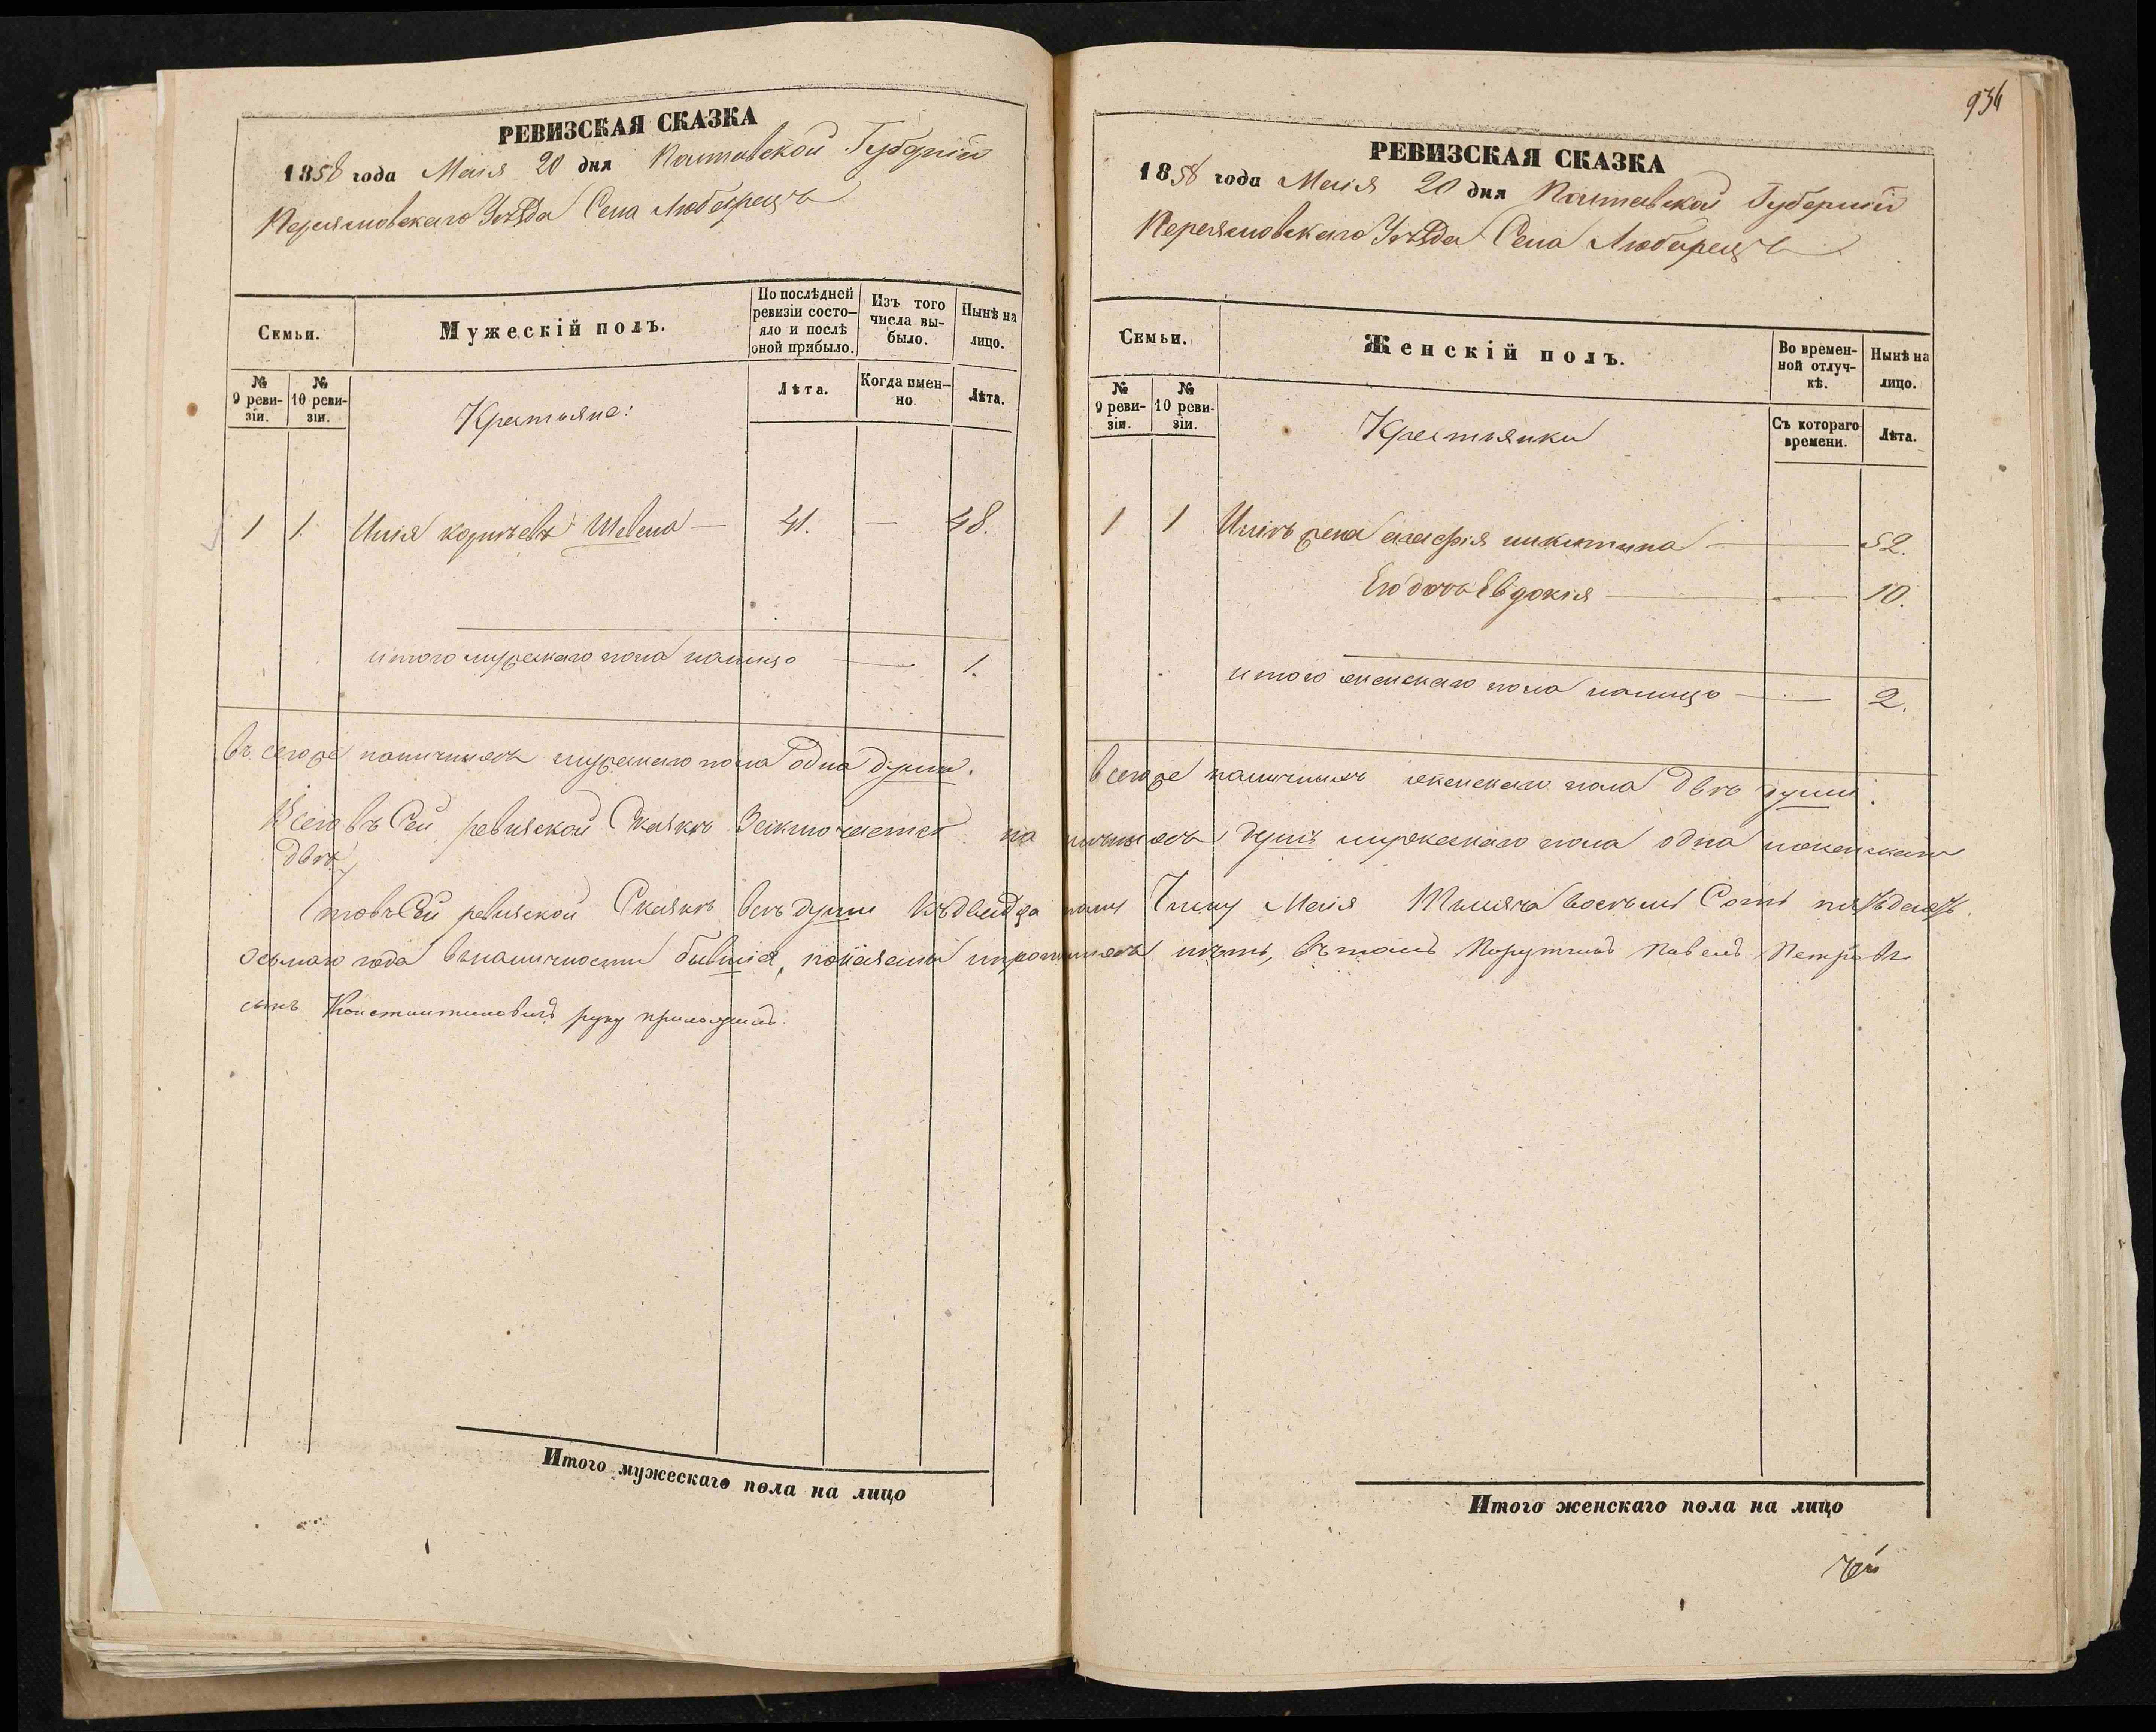 РЕВИЗСКАЯ СКАЗКА
1858 года Маія 20 дня Полтавской Губерніи
Переясловскаго Уѣзда Села Любарецъ
Семьи.
Мужескій полъ.
По послѣдней ревизіи состояло и послѣ оной прибыло.
Изъ того числа выбыло.
Нынѣ на лицо.
№ 9 ревизіи.
№ 10 ревизіи.
Крестьяне:
Лѣта.
Когда именно
Лѣта.
1 1. Илія Корнѣевъ Шевела — 41. — 48.
итого мужескаго пола налицо — 1.
Всегоже наличныхъ мужескаго пола одна душа.
Итого мужескаго пола на лицо
934
РЕВИЗСКАЯ СКАЗКА
1858 года Маія 20 дня Полтавской Губерніи
Переясловскаго Уѣзда Села Любарецъ
Семьи.
Женскій полъ.
Во временной отлучкѣ.
Нынѣ на лицо.
№ 9 ревизіи.
№ 10 ревизіи.
Крестьянки
Съ котораго времени.
Лѣта.
1 1 Иліи жена Агафія Никитина — 52.
Его дочь Евдокія — 10.
итого женскаго пола налицо — 2.
Всегоже наличныхъ женскаго пола двѣ души.
Всего въ Сей ревизской Сказкѣ Заключается наличныхъ душъ мужескаго пола одна и женскаго
двѣ,
Что въ Сей ревизской Сказкѣ всѣ души къ двадцатому Числу Маія Тысяча восемь Сотъ пятьдесятъ
осьмаго года въ наличности бывшія, показаны и прописныхъ нѣтъ, въ томъ Поручикъ Павелъ Петровъ
сынъ Константиновичъ руку приложилъ.
Итого женскаго пола на лицо